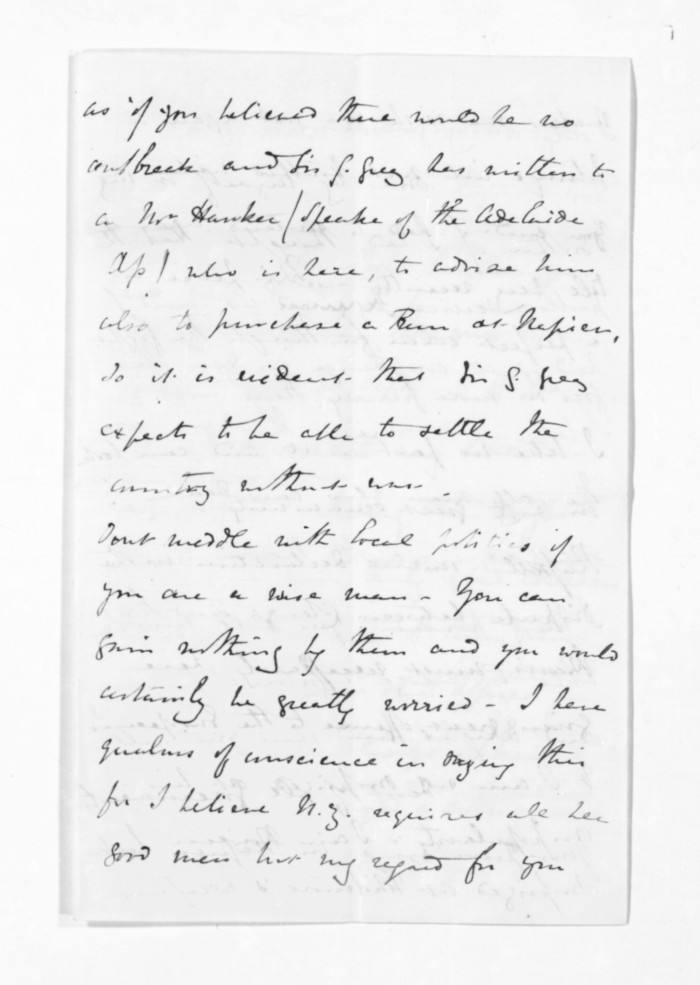 as if you believed there would be no
outbreak and Sir G. Grey has written to
a Mr Hawker (Speaker of the Adelaide
Ap) who is here, to advise him
also to purchase a Run at Napier,
so it is evident that Sir G. Grey
expects to be able to settle the
country without war -
Dont meddle with local politics if
you are a wise man - You can
gain nothing by them and you would
certainly be greatly worried - I have
qualms of conscience in saying this
for I believe N.Z. requires all her
good men but my regard for you